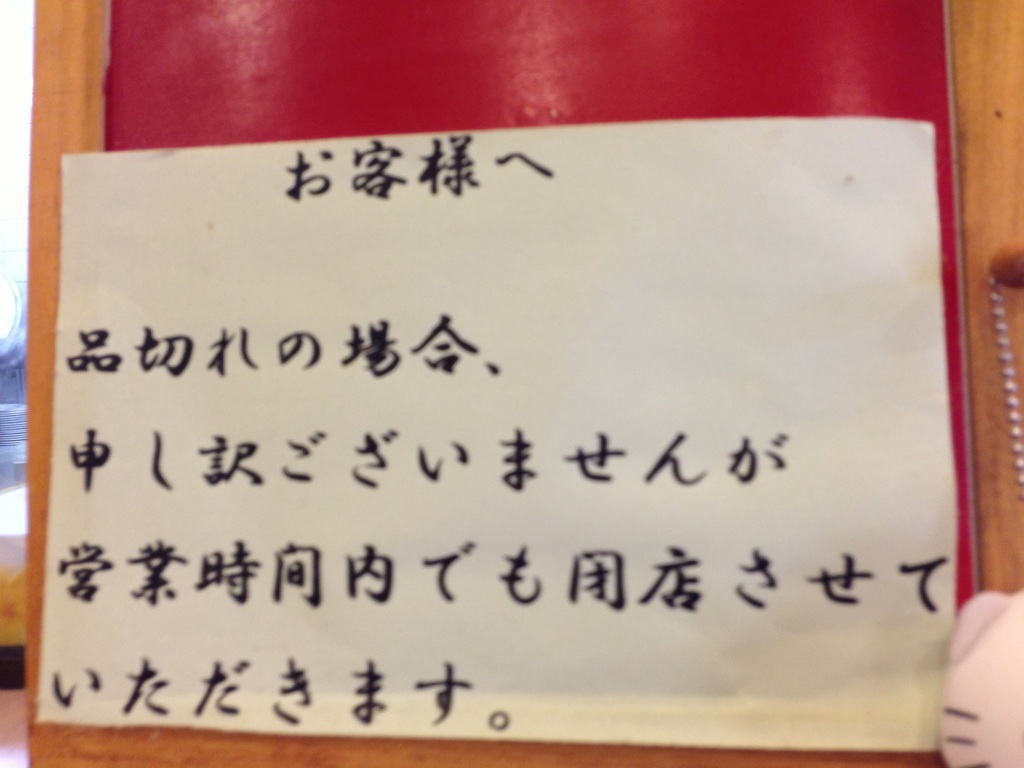 お客様へ
品切れの場合、
申し訳ございませんが
営業時間内でも閉店させて
いただきます。